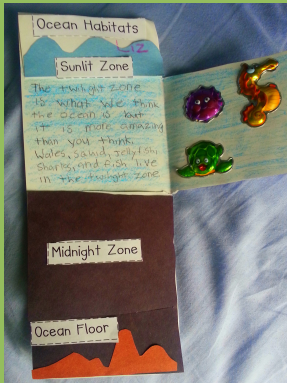 Ocean Habitats
Liz
Sunlit Zone
The twilight zone
is what we think
the ocean is but
it is more amazing
than you think.
Wales, squid, Jelly fish,
Sharks, and fish live
in the twilight zone
Midnight Zone
Ocean Floor